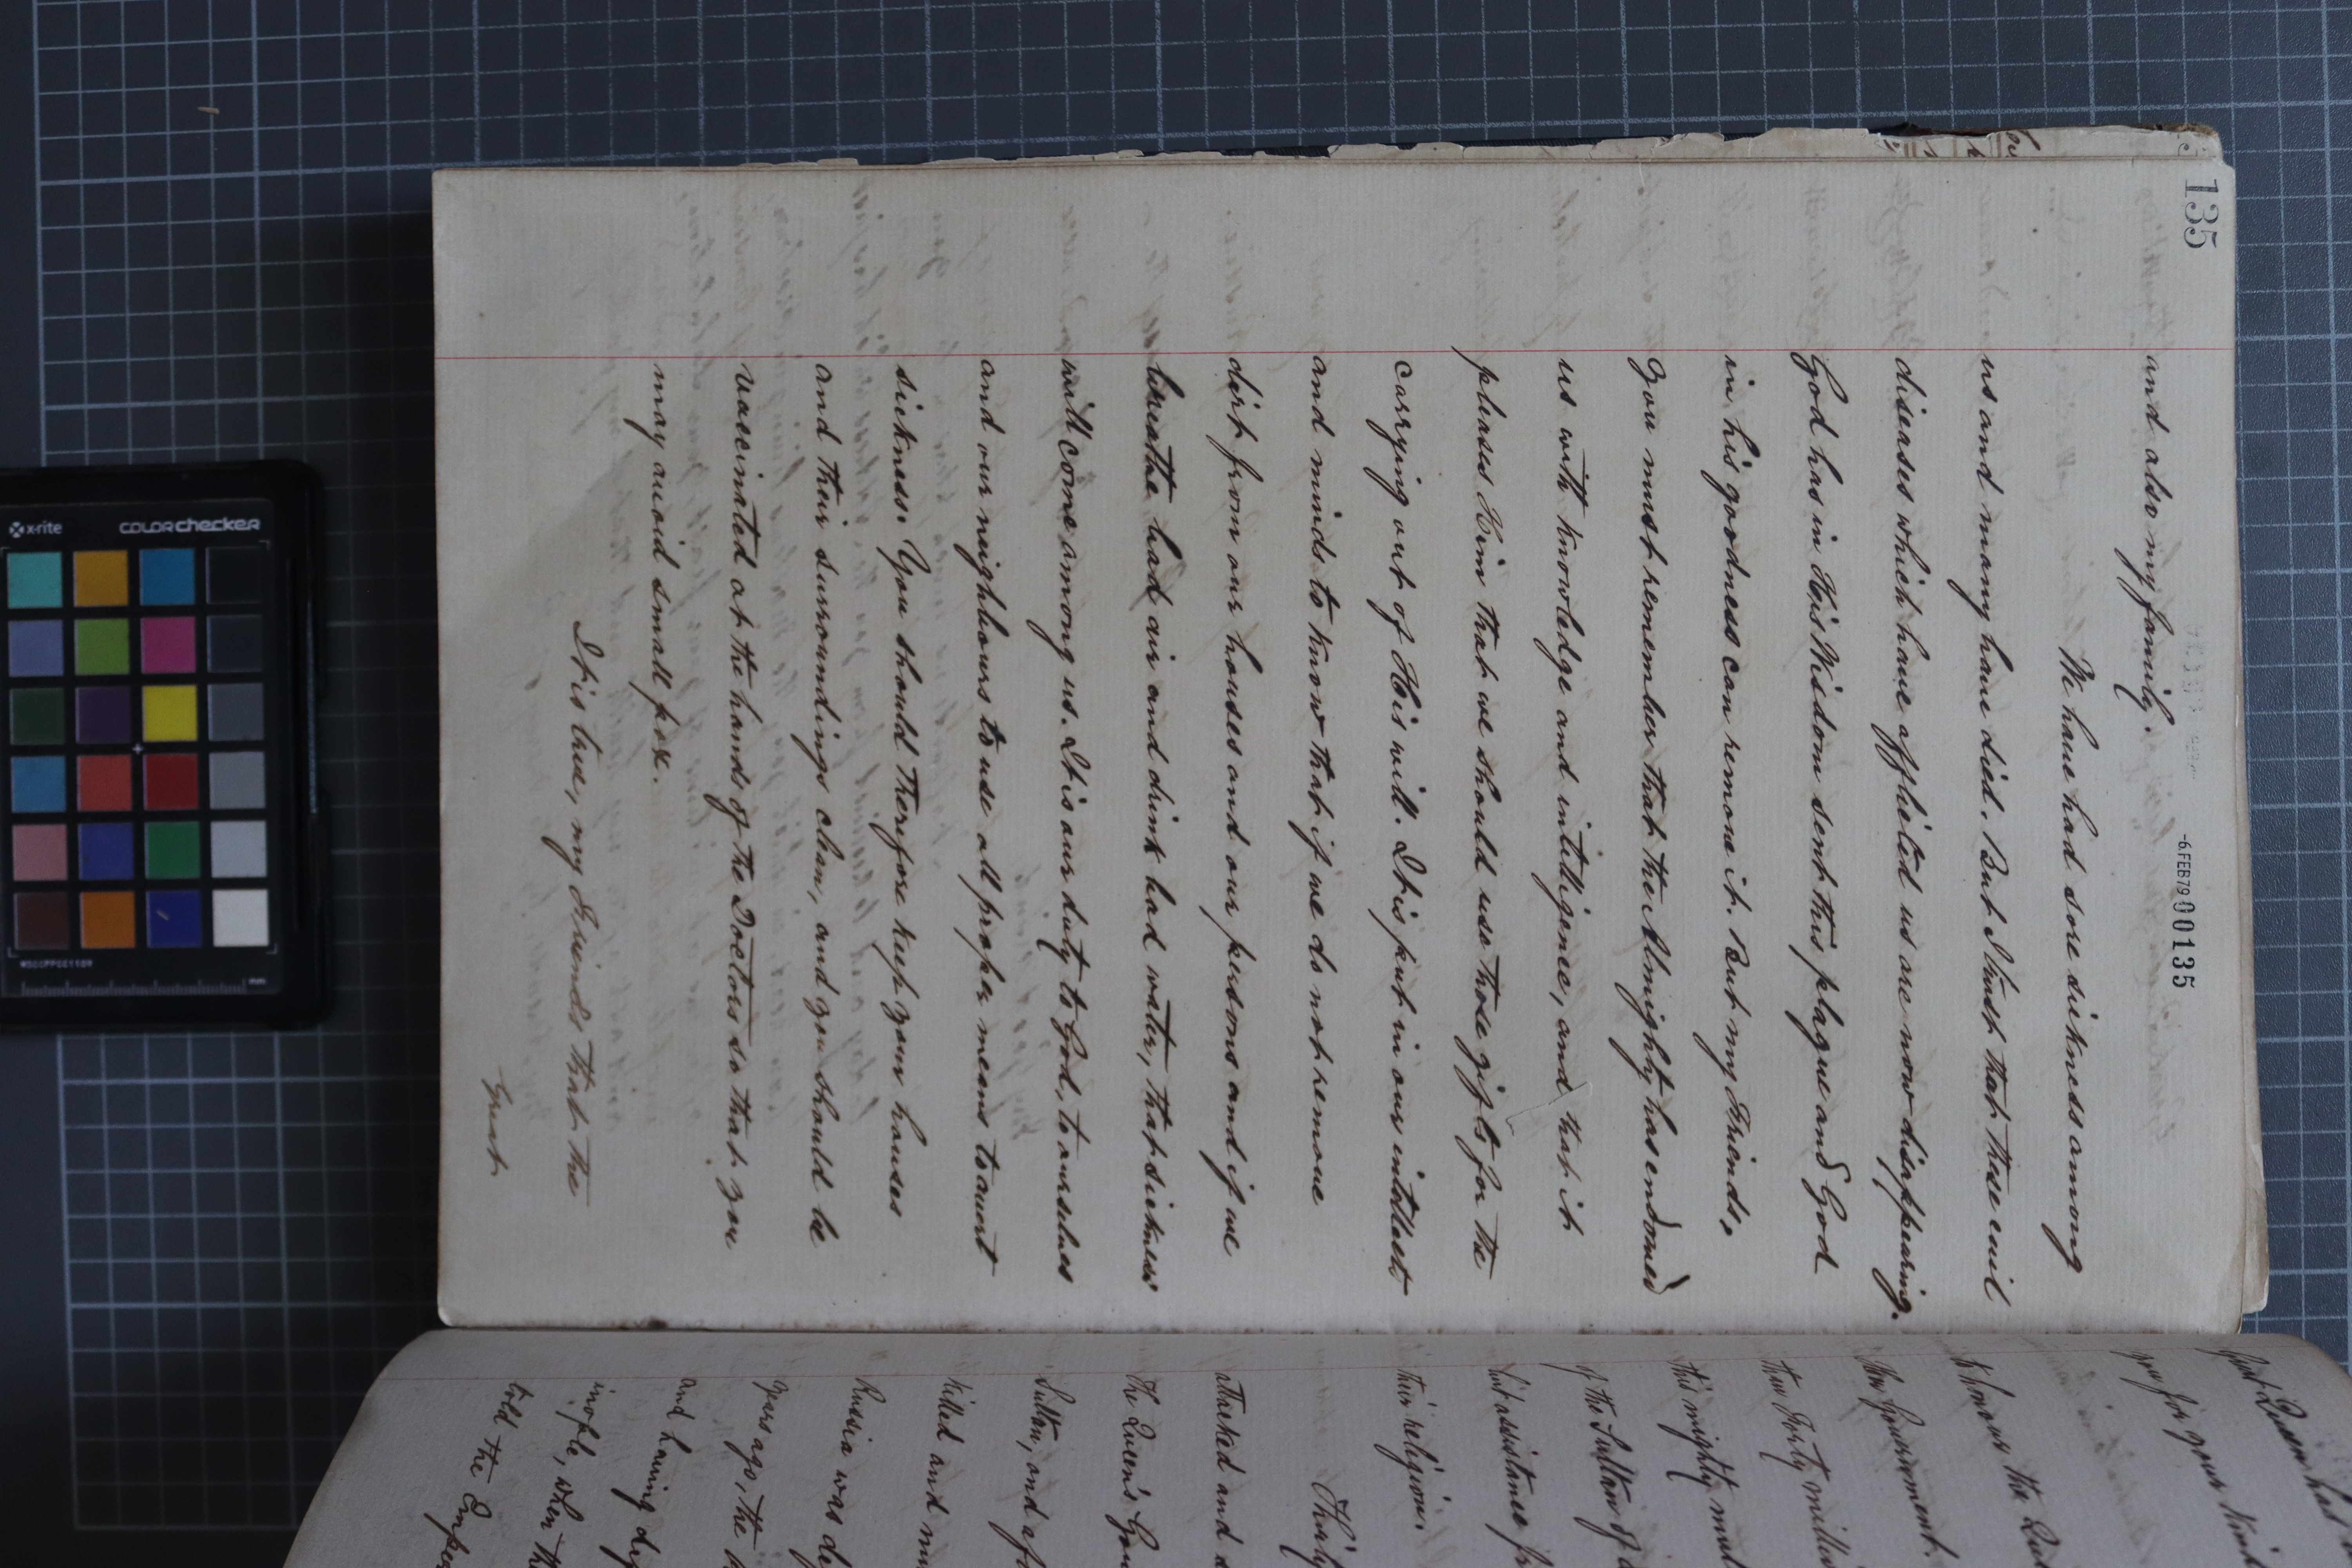 135
-6.FEB79 000135
and also my family.
We have had sore sickness among
us and many have died. But I trust that these evil
diseases which have afflicted us are now disappearing.
God has in His Wisdom sent this plague and God
in his goodness can remove it. But my Friends,
you must remember that the Almighty has endowed
us with knowledge and intelligence, and that it
pleases Him that we should use those gifts for the
carrying out of His will. It is put in our intellect
and minds to know that if we do not remove
dirt from our houses and our persons and if we
breathe bad air and drink bad water, that sickness
will come among us. It is our duty to God, to ourselves
and our neighbours to use all proper means to avert
sickness. You should therefore keep your houses
and their surroundings clean, and you should be
vaccinated at the hands of the Doctors so that you
may avoid small pox.
It is true, my Friends that the
Great
Great Queen has
you for your kin
to honour the Qu
Her Government.
than Forty milli
this mighty mul
of the Sultan of
but assistance fr
their religion.
Thirty
attacked and
the Queen's Gov
Sultan, and af
killed and m
Russia was de
years ago, the
and having def
inople, when th
told the Empe
x-rite
colorchecker
MSCCPPCC1109
mm